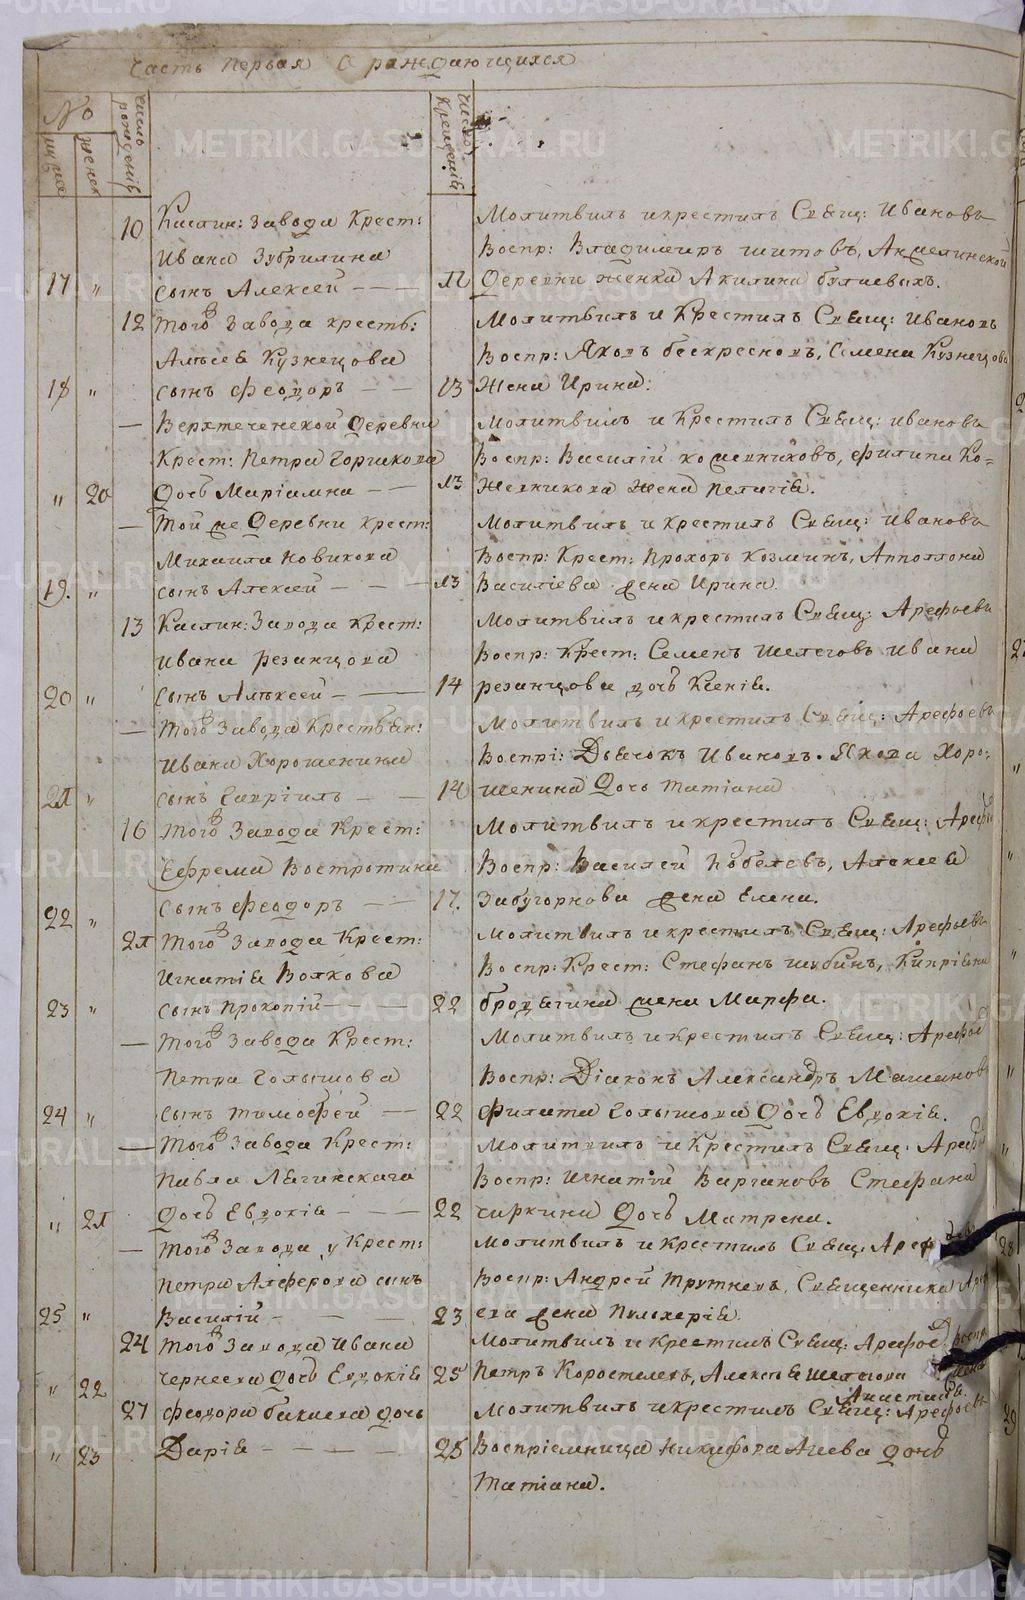 Часть Первая О раждающихся
№
мужеск
женск
Число рожденiя
Число Крещенiя
10 Каслин: Завода Крест: Молитвилъ и крестилъ Свящ: Ивановъ
Ивана Зубрилина Воспр: Владимиръ Шитовъ,
17 " сынъ Алексей 11 Деревни женка Акилина
12 Того Завода крестьян: Молитвилъ и Крестилъ Свящ: Ивановъ
Алѣѯея Кузнецова Воспр: Яковъ бескресновъ, Семена Кузнецова
18 " сынъ Феодоръ 13 Жена Ирина:
— Верхтеченской Деревни Молитвилъ и Крестилъ Свящ: Ивановъ
Крест: Петра Горшкова Воспр: Василiй кожевниковъ, Филипа Ко=
" 20 Дочь Марiамна 13 Жевникова жена Пелагiя.
— Той же Деревни крест: Молитвилъ и крестилъ Свящ: Ивановъ
Михаила Новикова Воспр: Крест: Прохоръ Козминъ, Апполлона
19. " сынъ Алексей 13 Василiева жена Ирина
13 Каслин: Завода Крест: Молитвилъ и крестилъ Свящ: Арефьевъ
Ивана Резанцова Воспр: Крест: Семенъ Шелеговъ Ивана
20 " сынъ Алексей 14 резанцова дочь Ксенiя.
— Того Завода Крестьян: Молитвилъ и крестилъ Свящ: Арефьевъ
Ивана Хорошенина Воспрi: Дьячокъ Ивановъ. Якова Хоро:
21 " сынъ Гаврiилъ 14 шенина Дочь Татiана
16 Того Завода Крест: Молитвилъ и крестилъ Свящ:
Ефрема Востротина Воспр: Василей Кобелевъ, Алексея
22 " Сынъ Феодоръ 17. Забугорнова жена Елена.
21 Того Завода Крест: Молитвилъ и крестилъ Свящ: Арефьевъ
Игнатiя Волкова Воспр: Крест: Стефанъ Шубинъ, Кипрiяна
23 " сынъ Прокопiй 22 бродягина жена Марфа.
— Того Завода Крест: Молитвилъ и крестилъ Свящ:
Петра Голышова Воспр: Дiаконъ Александръ
24 " сынъ Тимофей 22 Филата Голышова Дочь Евдокiя.
— Того Завода Крест: Молитвилъ и Крестилъ Свящ:
Павла Лягинскаго Воспр: Игнатiй Варгановъ Стефана
" 21 Дочь Евдокiя 22 Чиркина Дочь Матрена.
— Того Завода у Крест: Молитвилъ и Крестилъ Свящ:
Петра Алферова сынъ Воспр: Андрей Трутневъ, Священника
25 " Василiй 23 ева жена Пульхерiя
24 Того Завода Ивана Молитвилъ и крестилъ Свящ: воспр
" 22 Чернеева Дочь Евдокiя 25 Петръ Коростелевъ, Алексея Шелегова жена
Анастасiя
27 Феодора бакаева дочь Молитвилъ и крестилъ Свящ: Арефьевъ
" 23 Дарiя 28 Воспрiемница Никифора Агеева дочь
Татiана.
METRIKI.GASO-URAL.RU